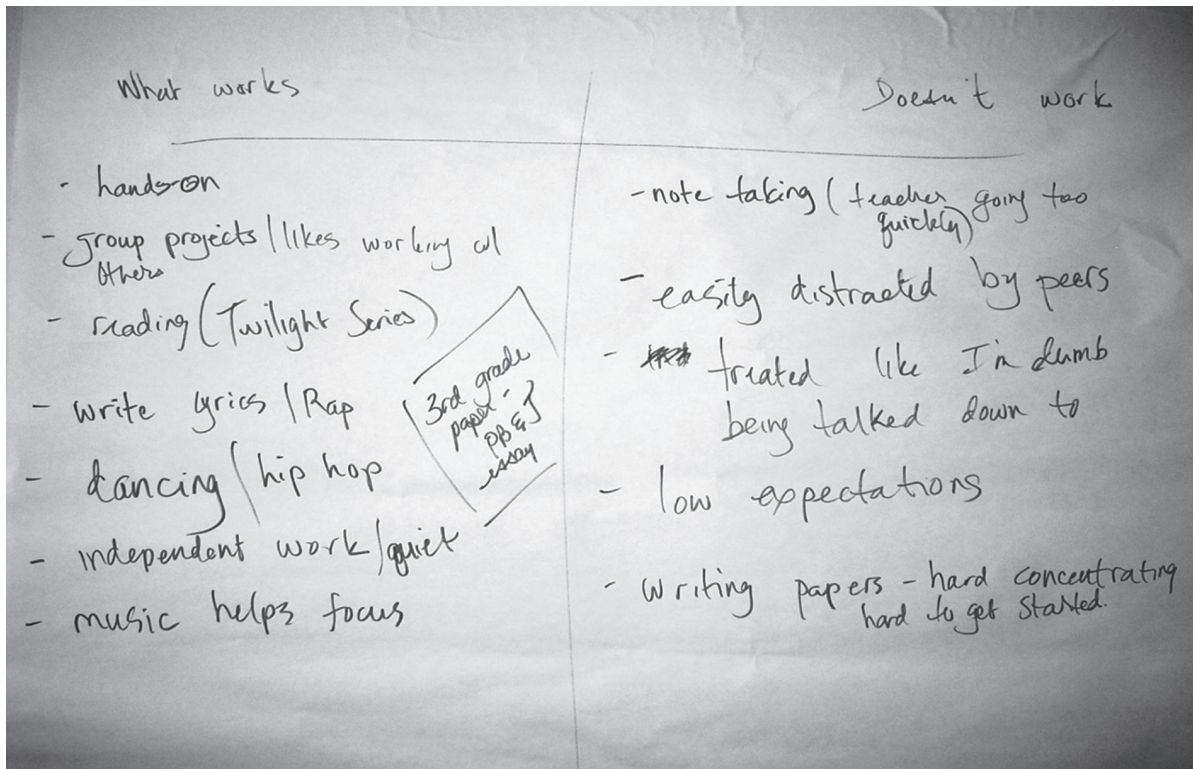 What works
- hands-on
- group projects/likes working w/
others
- reading (Twilight Series)
- write lyrics/Rap
- dancing/hip hop
- independent work/quiet
- music helps focus
3rd grade
paper -
PB & J
essay
Doesn't work
- note taking (teacher going too
quickly)
- easily distracted by peers
- treated like I'm dumb
being talked down to
- low expectations
- writing papers - hard concentrating
hard to get started.